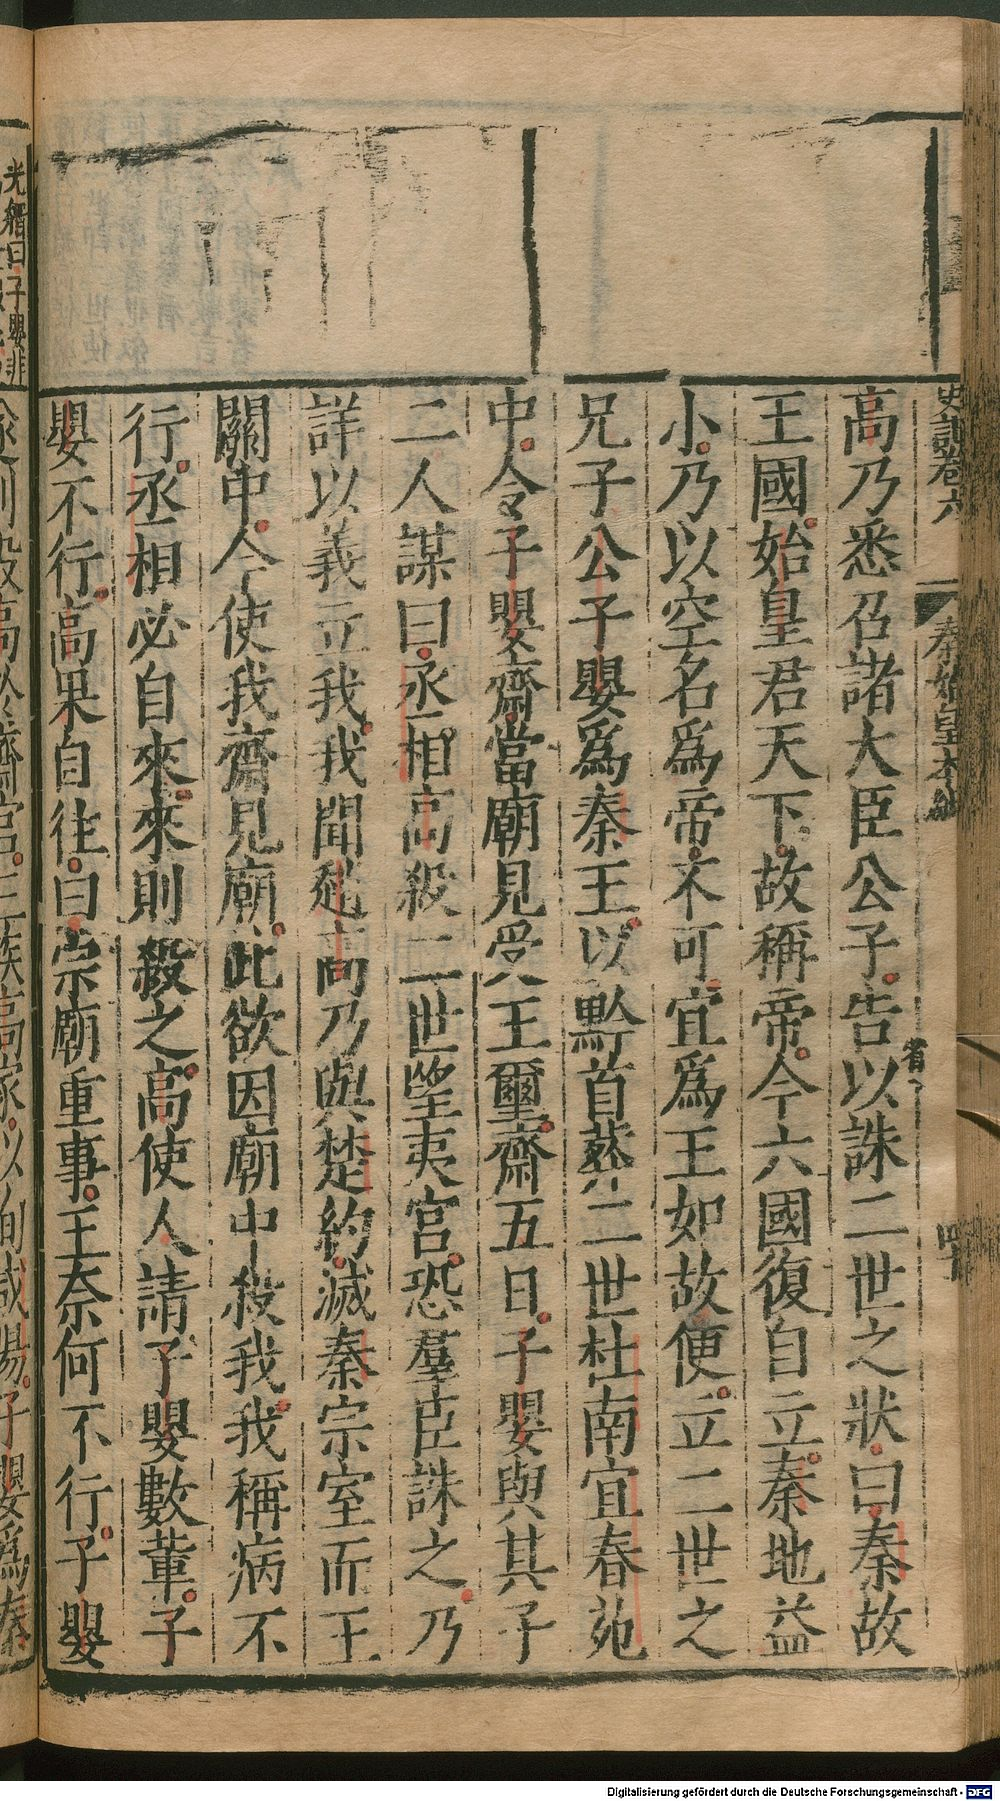 史記卷六
秦始皇本紀
高乃悉召諸大臣公子告以誅二世之狀曰秦故
王國始皇君天下故稱帝今六國復自立秦地益
小乃以空名爲帝不可宜爲王如故便立二世之
兄子公子嬰爲秦王以黔首葬二世杜南宜春苑
中令子嬰齋當廟見受王璽齋五日子嬰與其子
二人謀曰丞相高殺二世望夷宮恐羣臣誅之乃
詳以義立我我聞趙高乃與楚約滅秦宗室而王
關中今使我齋見廟此欲因廟中殺我我稱病不
行丞相必自來來則殺之高使人請子嬰數輩子
嬰不行高果自往曰宗廟重事王奈何不行子嬰
殺高於齋宮三族高家以徇咸陽子嬰爲秦
Digitalisierung gefördert durch die Deutsche Forschungsgemeinschaft - DFG